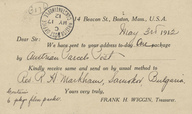 14 Beacon St., Boston, Mass., U.S.A.
May 3rd 1912
Dear Sir:
We have sent to your address to-day One package
by American Parcels Post
Kindly receive same and send us by usual method to
Rev. R. H. Markham, Samokov, Bulgaria
Yours very truly,
FRANK H. WIGGIN, Treasurer.